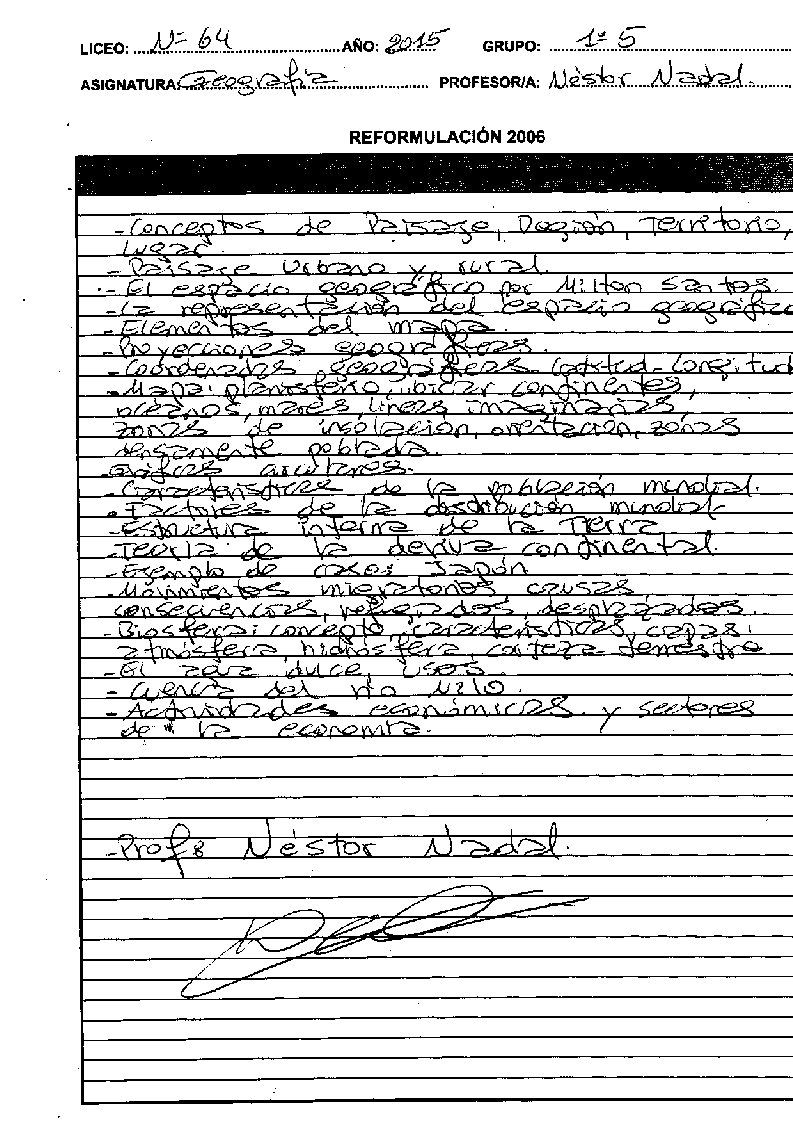 LICEO: Nº 64 AÑO: 2015 GRUPO: 1º 5
ASIGNATURA: Geografía PROFESOR/A: Néstor Nadal.
REFORMULACIÓN 2006
- Conceptos de Paisaje, Región, Territorio,
Lugar.
- Paisaje Urbano y rural.
- El espacio geográfico por Milton Santos.
- La representación del espacio geográfico
- Elementos del mapa.
- Proyecciones geográficas.
- Coordenadas geográficas Latitud - Longitud
- Mapa: planisferio, ubicar continentes,
océanos, mares, líneas imaginarias,
zonas de insolación, orientación, zonas
densamente poblada.
Gráficas circulares.
- Características de la población mundial.
- Factores de la distribución mundial
- Estructura interna de la Tierra
- Teoría de la deriva continental.
- Ejemplo de casos Japón
- Movimientos migratorios causas
consecuencias, refugiados, desplazados.
- Biosfera: concepto, características, capas:
atmósfera, hidrósfera, corteza terrestre
- El agua dulce, usos.
- Cuenca del río Nilo.
- Actividades económicas y sectores
de la economía.
- Prof: Néstor Nadal.